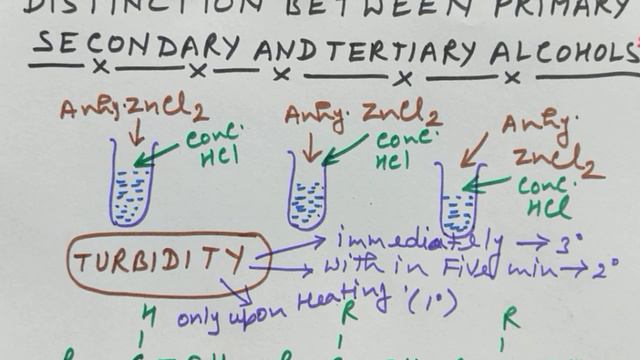 DISTINCTION BETWEEN PRIMARY
SECONDARY AND TERTIARY ALCOHOLS
Anhy. ZnCl2 Anhy. ZnCl2 Anhy. ZnCl2
conc. HCl conc. HCl conc. HCl
TURBIDITY
immediately → 3°
with in Five min → 2°
only upon Heating (1°)
H R R